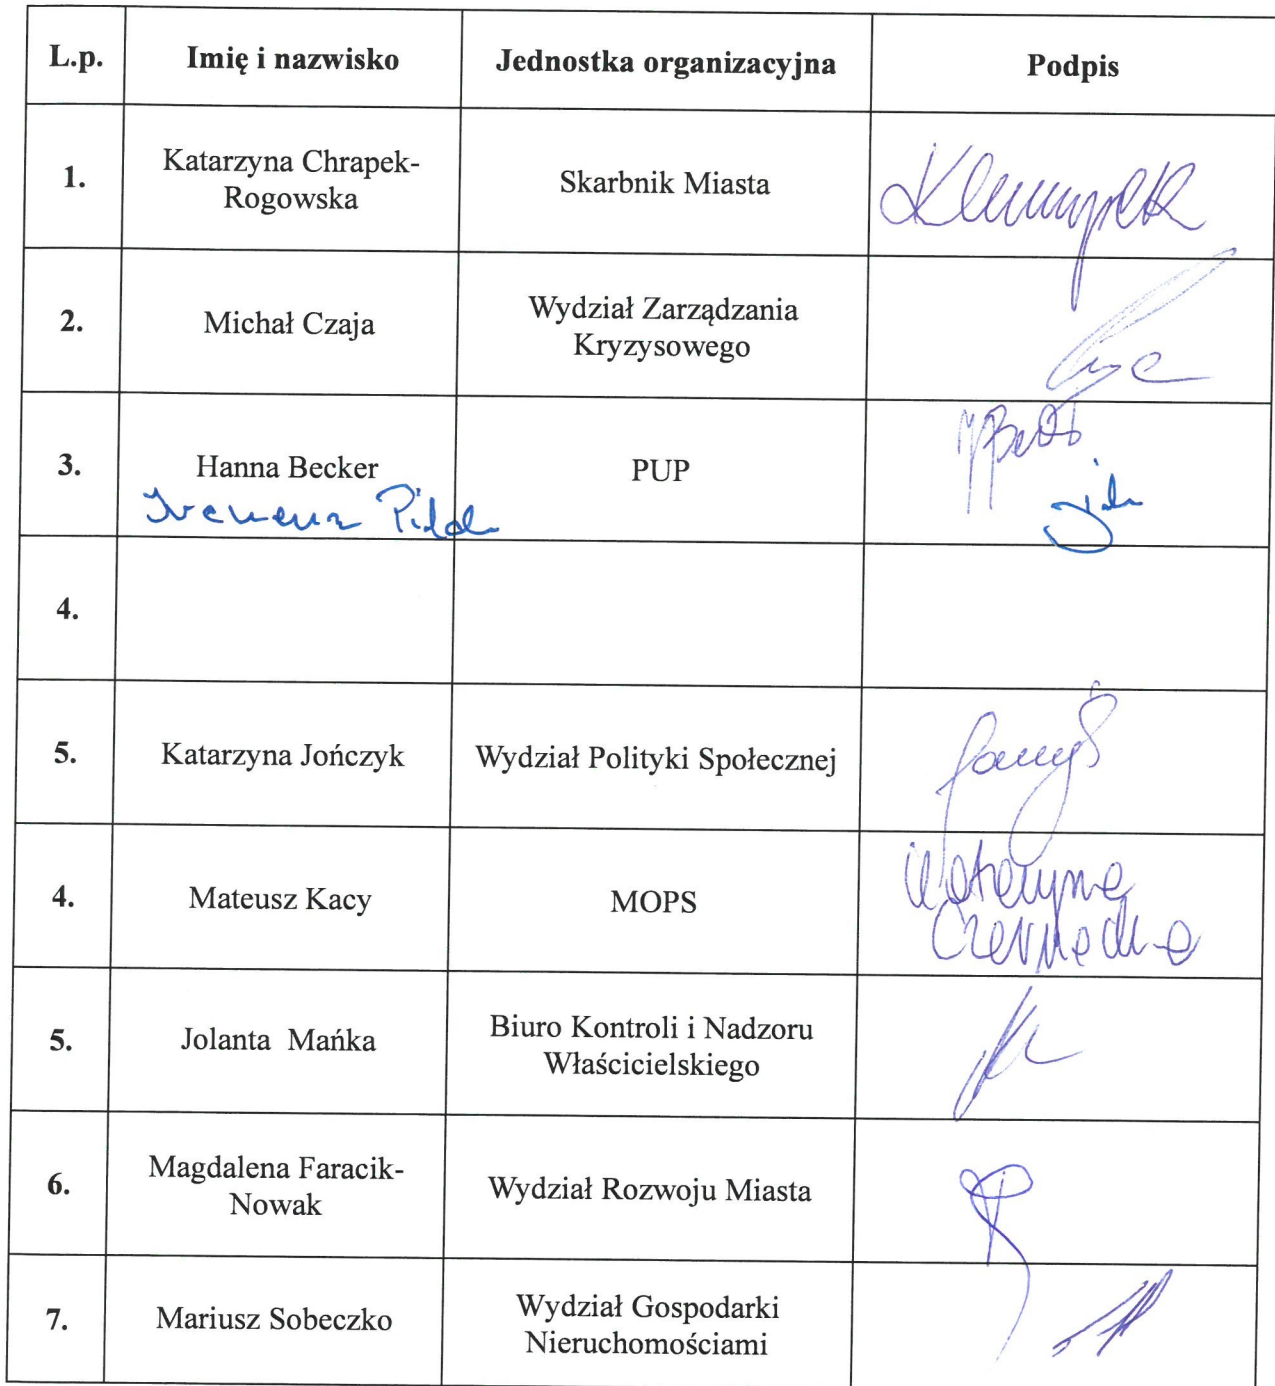 L.p. Imię i nazwisko Jednostka organizacyjna Podpis
1. Katarzyna Chrapek-
Rogowska Skarbnik Miasta
2. Michał Czaja Wydział Zarządzania
Kryzysowego
3. Hanna Becker PUP
4.
5. Katarzyna Jończyk Wydział Polityki Społecznej
4. Mateusz Kacy MOPS
5. Jolanta Mańka Biuro Kontroli i Nadzoru
Właścicielskiego
6. Magdalena Faracik-
Nowak Wydział Rozwoju Miasta
7. Mariusz Sobeczko Wydział Gospodarki
Nieruchomościami